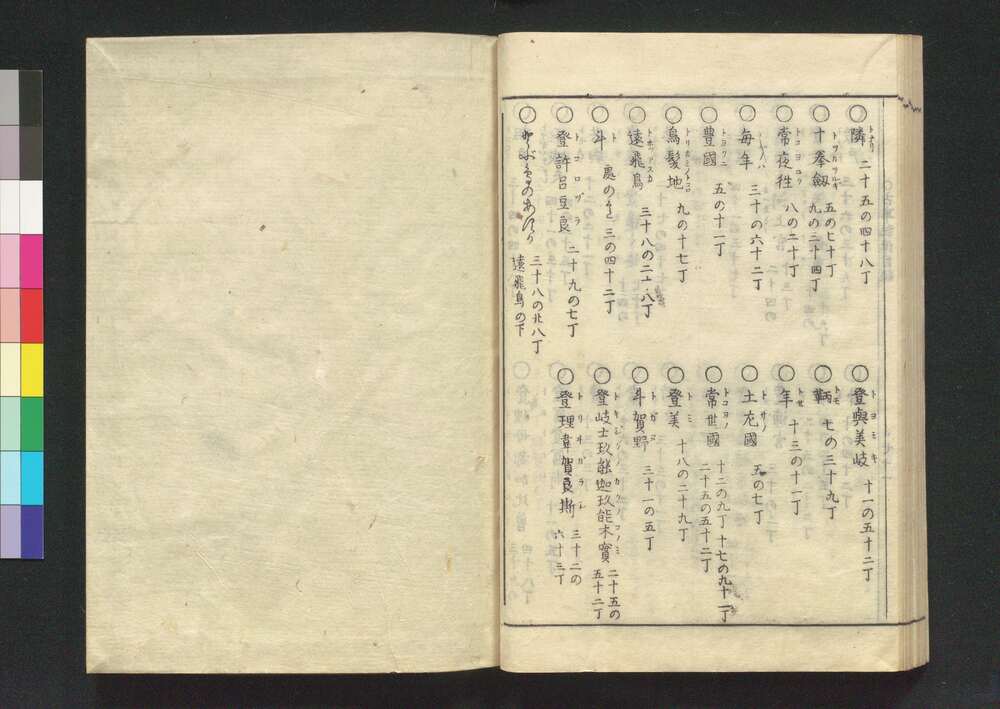 ○隣 トナリ 二十五の四十八丁
○十拳劔 トツカツルギ 五の七十丁 九の三十四丁
○常夜徃 トコヨユク 八の二十丁
○毎年 三十の六十二丁
○豊國 トヨクニ 五の十一丁
○鳥髪地 九の十七丁
○遠飛鳥 トホツアスカ 三十八の二十八丁
○斗 ト 三の四十二丁
○登許呂豆良 トコロヅラ 二十九の七丁
三十八の廿八丁 遠飛鳥の下
○登與美岐 トヨミキ 十一の五十二丁
○鞆 トモ 七の三十九丁
○年 トセ 十三の十一丁
○土左國 トサノ 五の七丁
○常世國 トコヨノ 十二の九丁 十七の九十一丁 二十五の五十二丁
○登美 トミ 十八の二十九丁
○斗賀野 トガヌ 三十一の五丁
○登岐士玖能迦玖能木實 トキジクノカクノコノミ 二十五の五十二丁
○登理韋賀良斯 トリヰガラシ 三十二の六十三丁